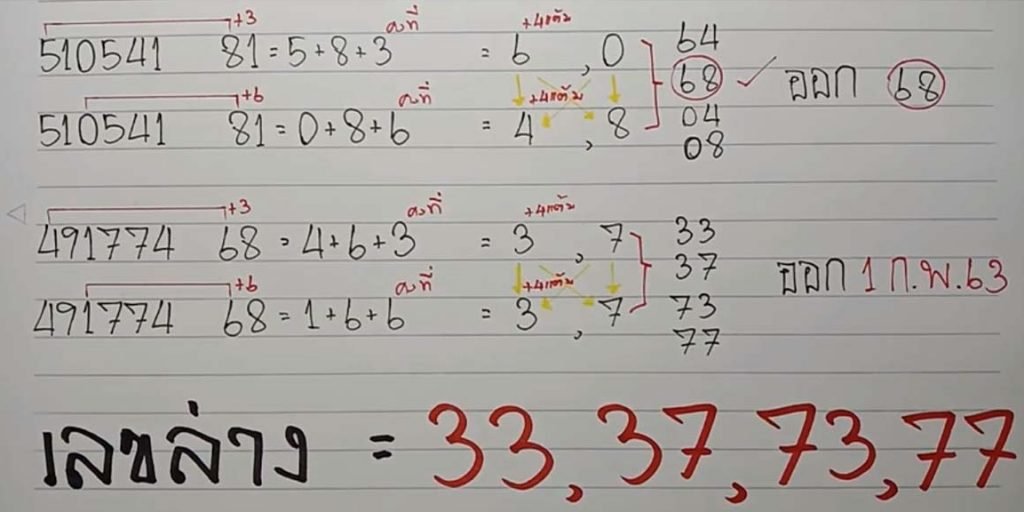 +3 คงที่ +4แต้ม
510541 81 = 5+8+3 = 6 , 0 64
68 ✓ ออก 68
+6 คงที่ +4แต้ม
510541 81 = 0+8+6 = 4 , 8 04
08
+3 คงที่ +4แต้ม
491774 68 = 4+6+3 = 3 , 7 33
37 ออก 1 ก.พ.63
+6 คงที่ +4แต้ม
491774 68 = 1+6+6 = 3 , 7 73
77
เลขล่าง = 33, 37, 73, 77